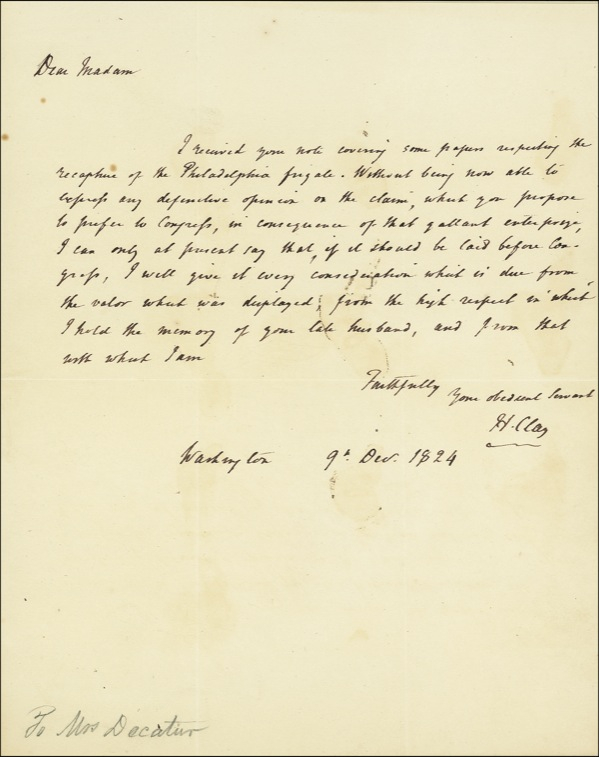 Dear Madam
I received your note covering some papers respecting the
recapture of the Philadelphia frigate. Without being now able to
express any definitive opinion on the claim, which you propose
to prefer to Congress, in consequence of that gallant enterprize,
I can only at present say that, if it should be laid before Con-
gress, I will give it every consideration which is due from
the valor which was displayed, from the high respect in which
I hold the memory of your late husband, and from that
with which I am
Faithfully Your obedient Servant
H. Clay
Washington 9h Dec. 1824
To Mrs Decatur